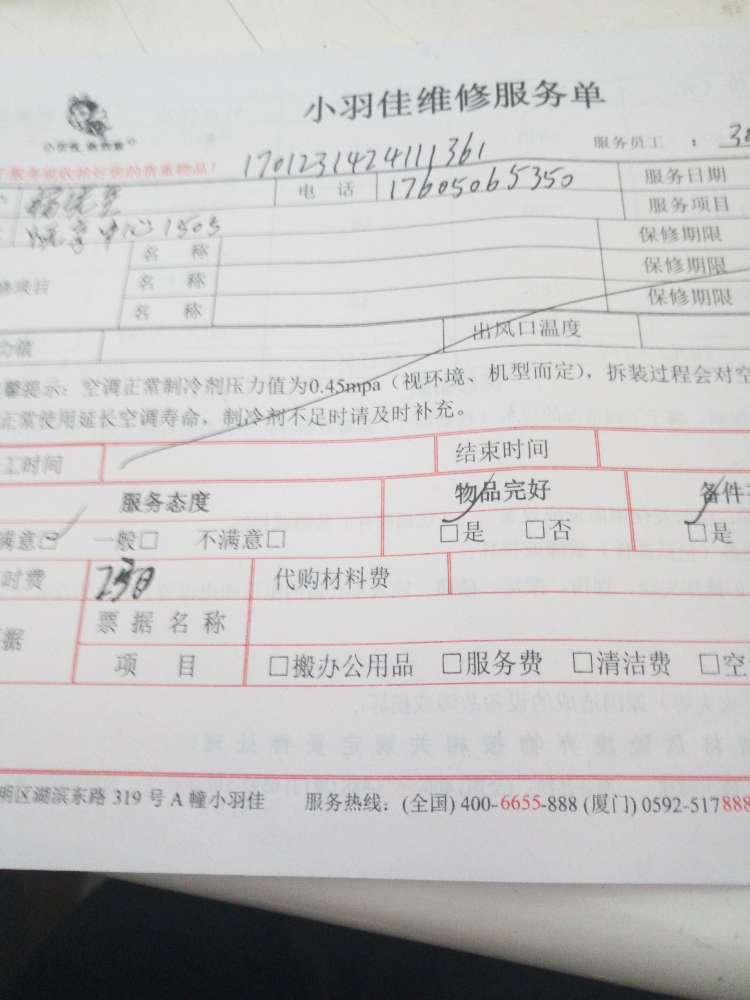 小羽佳维修服务单
服务员工 :
1701231424111361
电 话 17605065350 服务日期
中心1503 服务项目
名 称 保修期限
名 称 保修期限
名 称 保修期限
出风口温度
馨提示：空调正常制冷剂压力值为0.45mpa（视环境、机型而定），拆装过程会对空
正常使用延长空调寿命，制冷剂不足时请及时补充。
工时间 结束时间
服务态度 物品完好 备件
满意□ 一般□ 不满意□ □是 □否 □是
时费 代购材料费
据 票 据 名 称
项 目 □搬办公用品 □服务费 □清洁费 □空
明区湖滨东路 319 号 A 幢小羽佳 服务热线：(全国) 400-6655-888 (厦门) 0592-517888